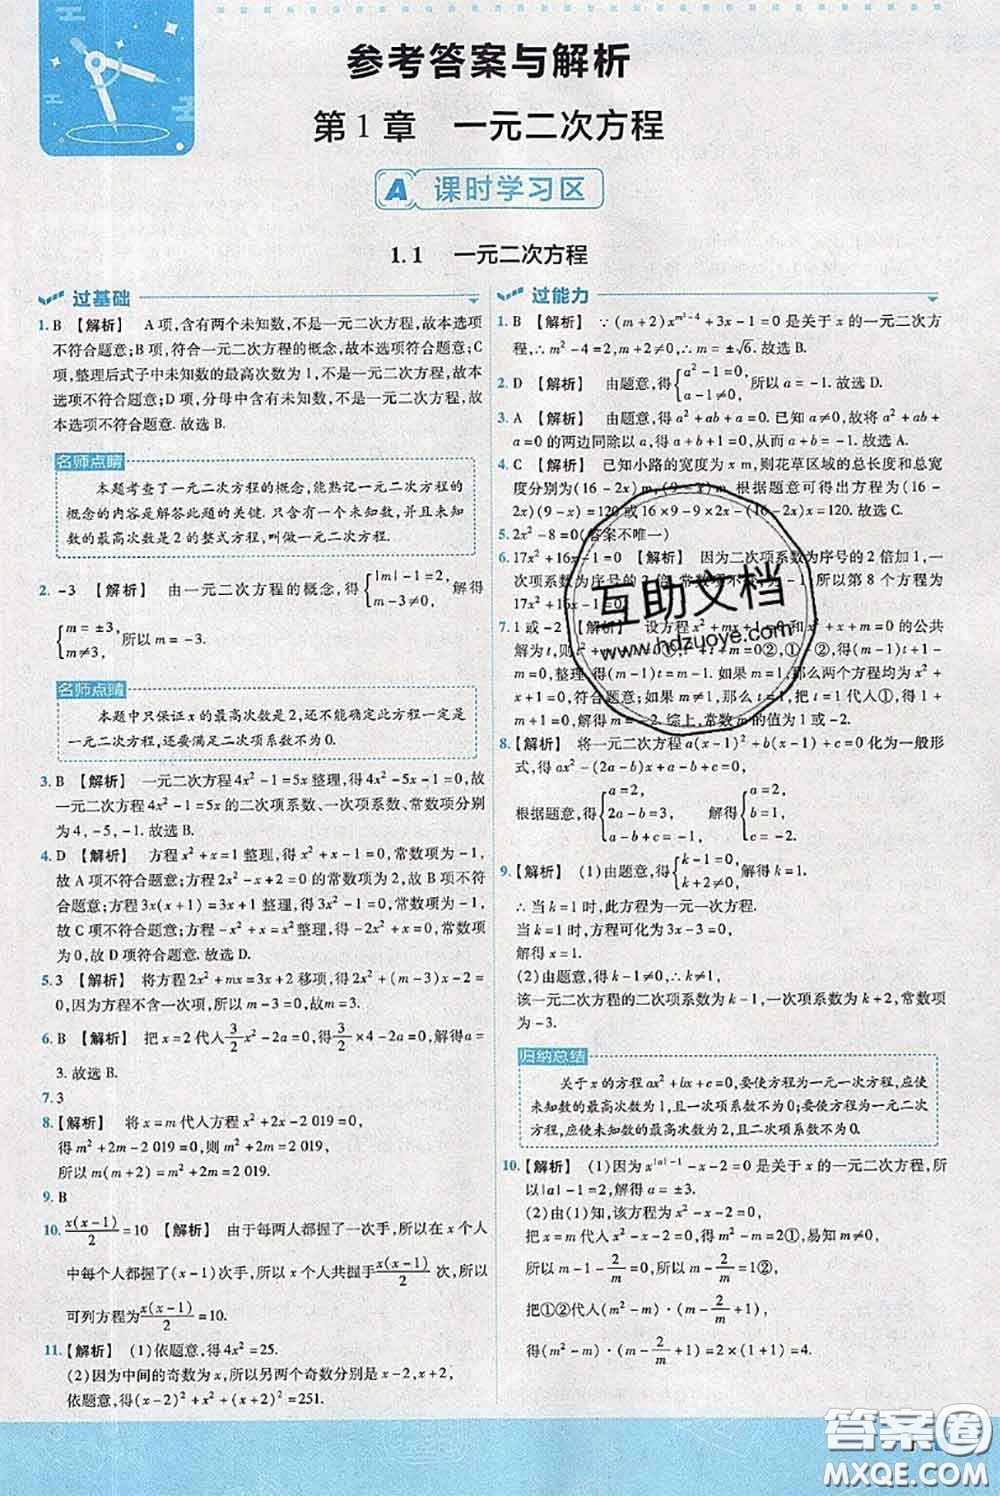 参考答案与解析
第1章 一元二次方程
A 课时学习区
1.1 一元二次方程
过基础
1. B 【解析】 A项,含有两个未知数,不是一元二次方程,故本选项
不符合题意;B项,符合一元二次方程的概念,故本选项符合题意;C
项,整理后式子中未知数的最高次数为1,不是一元二次方程,故本
选项不符合题意;D项,分母中含有未知数,不是一元二次方程,故
本选项不符合题意.故选B.
名师点睛
本题考查了一元二次方程的概念,能熟记一元二次方程的
概念的内容是解答此题的关键.只含有一个未知数,并且未知
数的最高次数是2的整式方程,叫做一元二次方程.
2. -3 【解析】 由一元二次方程的概念,得{|m|-1=2, m-3≠0, 解得
{m=±3, m≠3, 所以m=-3.
名师点睛
本题中只保证x的最高次数是2,还不能确定此方程一定是
一元二次方程,还要满足二次项系数不为0.
3. B 【解析】 一元二次方程4x²-1=5x整理,得4x²-5x-1=0,故
一元二次方程4x²-1=5x的二次项系数、一次项系数、常数项分别
为4,-5,-1.故选B.
4. D 【解析】 方程x²+x=1整理,得x²+x-1=0,常数项为-1,
故A项不符合题意;方程2x²-x+2=0的常数项为2,故B项不符
合题意;方程3x(x+1)=3x+1整理,得3x²-1=0,常数项为-1,
故C项不符合题意;方程-x²+x=x²整理,得-2x²+x=0,常数项
为0,故D项符合题意.故选D.
5. 3 【解析】 将方程2x²+mx=3x+2移项,得2x²+(m-3)x-2=
0,因为方程不含一次项,所以m-3=0,故m=3.
6. B 【解析】 把x=2代入3/2x²-2a=0,得3/2×4-2a=0,解得a=
3.故选B.
7. 3
8. 【解析】 将x=m代入方程x²+2x-2 019=0,
得m²+2m-2 019=0,则m²+2m=2 019,
所以m(m+2)=m²+2m=2 019.
9. B
10. x(x-1)/2=10 【解析】 由于每两人都握了一次手,所以在x个人
中每个人都握了(x-1)次手,所以x个人共握手x(x-1)/2次,所以
可列方程为x(x-1)/2=10.
11. 【解析】 (1)依题意,得4x²=25.
(2)因为中间的奇数为x,所以另两个奇数分别为x-2,x+2,
依题意,得(x-2)²+x²+(x+2)²=251.
过能力
1. B 【解析】 ∵(m+2)x^(m²-4)+3x-1=0是关于x的一元二次方
程,∴m²-4=2,m+2≠0,∴m=±√6.故选B.
2. D 【解析】 由题意,得{a²-1=0, a-1≠0, 所以a=-1.故选D.
3. A 【解析】 由题意,得a²+ab+a=0.已知a≠0,故将a²+ab+
a=0的两边同除以a,得a+b+1=0,从而a+b=-1.故选A.
4. C 【解析】 已知小路的宽度为x m,则花草区域的总长度和总宽
度分别为(16-2x)m,(9-x)m.根据题意可得出方程为(16-
2x)(9-x)=120或16×9-9×2x-16x+2x²=120.故选C.
5. 2x²-8=0(答案不唯一)
6. 17x²+16x-1=0 【解析】 因为二次项系数为序号的2倍加1,一
次项系数为序号的2倍,常数项不变为-1,所以第8个方程为
17x²+16x-1=0.
7. 1或-2 【解析】 设方程x²+mx+1=0和x²+x+m=0的公共
解为t,则t²+mt+1=0①,t²+t+m=0②,①-②,得(m-1)t+1-
m=0,整理,得(m-1)t=m-1.如果m=1,那么两个方程均为x²+
x+1=0,符合题意;如果m≠1,那么t=1,把t=1代入①,得1+
m+1=0,解得m=-2.综上,常数m的值为1或-2.
8. 【解析】 将一元二次方程a(x-1)²+b(x-1)+c=0化为一般形
式,得ax²-(2a-b)x+a-b+c=0,
根据题意,得{a=2, 2a-b=3, a-b+c=-1, 解得{a=2, b=1, c=-2.
9. 【解析】 (1)由题意,得{k-1=0, k+2≠0, 解得k=1.
∴当k=1时,此方程为一元一次方程.
当k=1时,方程可化为3x-3=0,
解得x=1.
(2)由题意,得k-1≠0,∴k≠1,
该一元二次方程的二次项系数为k-1,一次项系数为k+2,常数项
为-3.
归纳总结
关于x的方程ax²+bx+c=0,要使方程为一元一次方程,应使
未知数的最高次数为1,且一次项系数不为0;要使方程为一元二次
方程,应使未知数的最高次数为2,且二次项系数不为0.
10. 【解析】 (1)因为x^(|a|-1)-x-2=0是关于x的一元二次方程,所
以|a|-1=2,解得a=±3.
(2)由(1)知,该方程为x²-x-2=0,
把x=m代入x²-x-2=0,得m²-m=2①,易知m≠0,
所以m-1-2/m=0,所以m-2/m=1②,
把①②代入(m²-m)·(m-2/m+1),
得(m²-m)·(m-2/m+1)=2×(1+1)=4.
互助文档
www.hdzuoye.com
答案圈
MXQE.COM